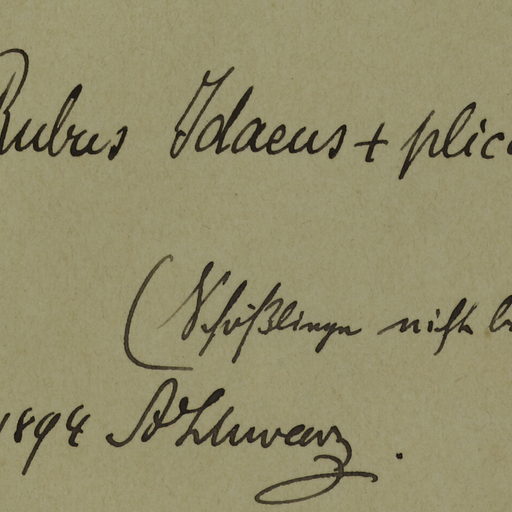 Rubus Idaeus + plic
(Schößlinge nicht b
1894 A Schwarz.